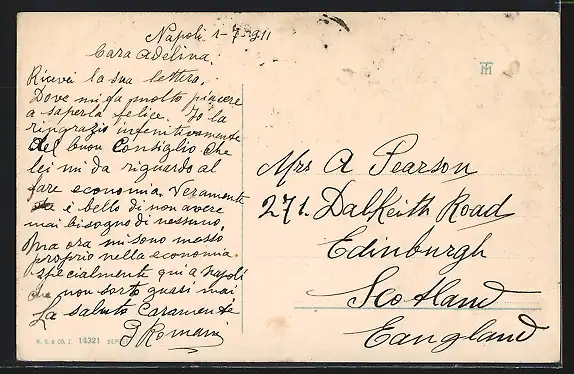 Napoli 1-7-911
Cara Adelina.
Ricevei la sua lettera.
Dove mi fa molto piacere
a saperla felice. Io la
ringrazio infenitivamente
del buon Consiglio che
lei mi da riguardo al
fare economia. Veramente
è bello di non avere
mai bisogno di nessuno.
Ma ora mi sono messo
proprio nella economia.
specialmente qui a Napoli
che non sorto quasi mai
La saluto Caramente
G Romani
Mrs A Pearson
271. Dalkeith Road
Edinburgh
Scotland
Eangland
14321